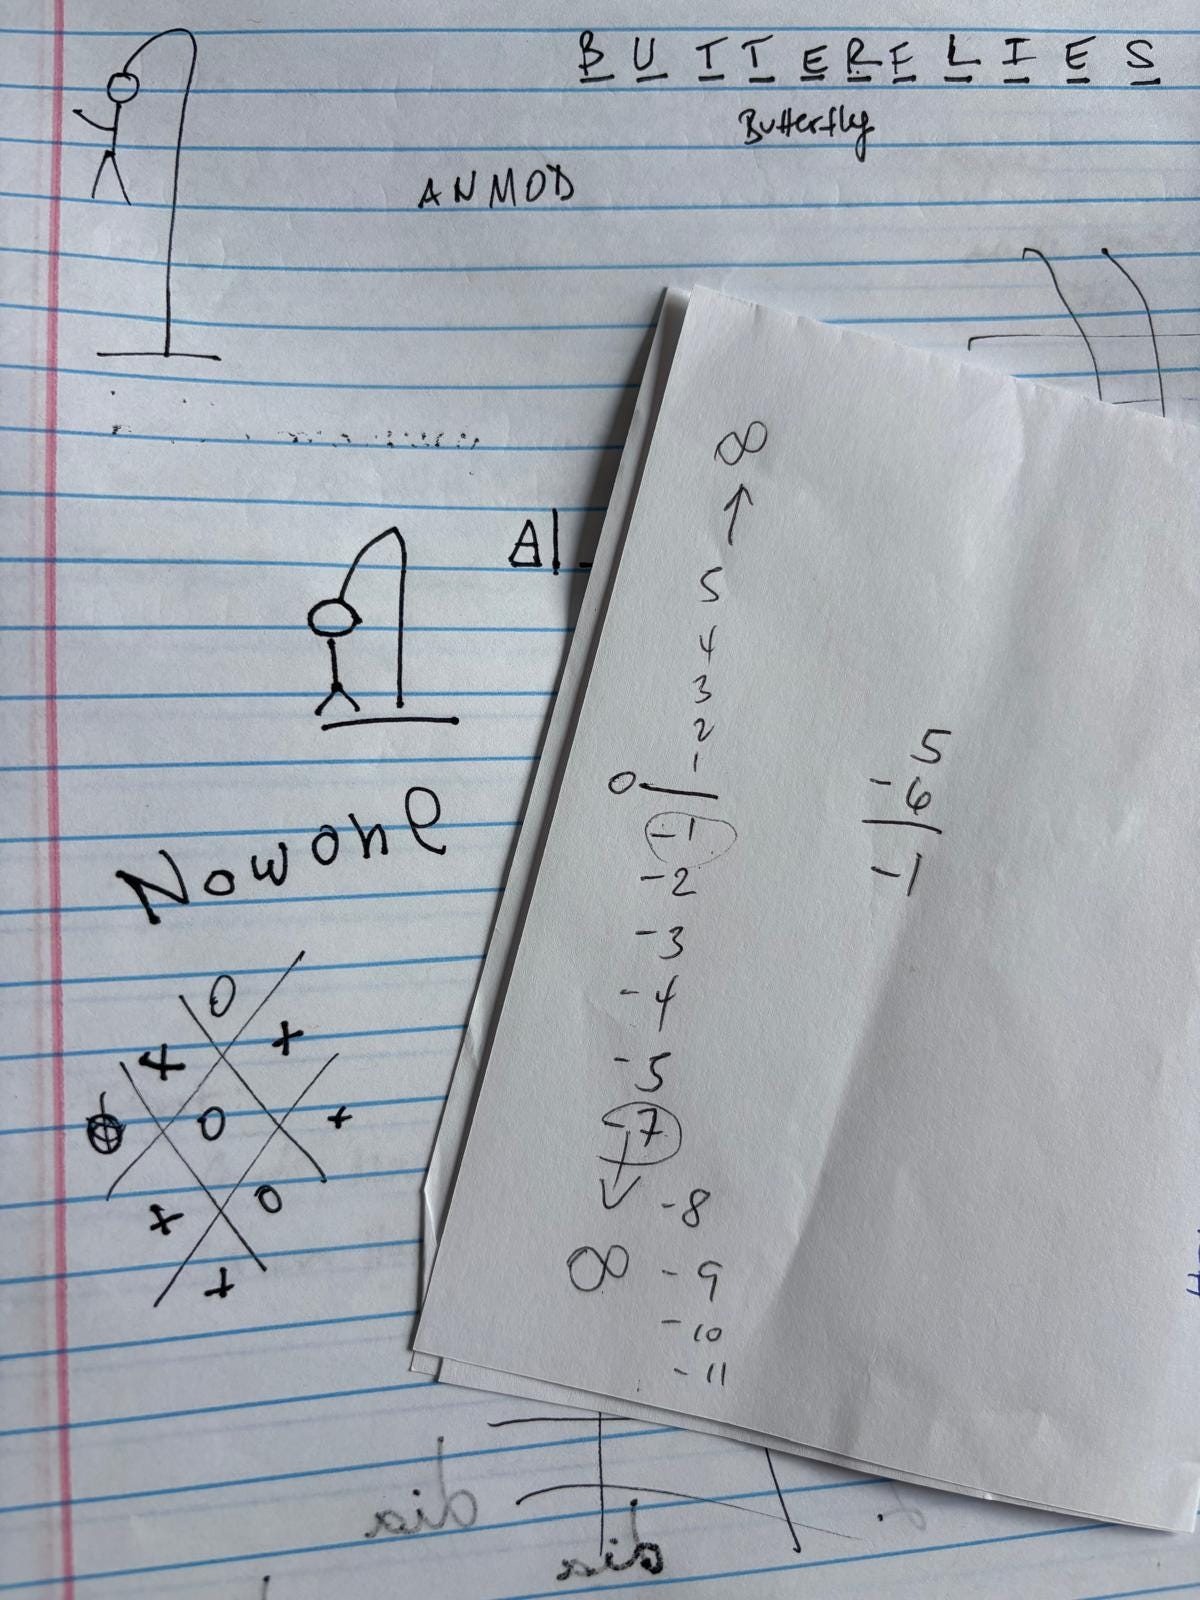 B U T T E R F L I E S
Butterfly
ANMOD
Al
Nowone
O
+ +
O +
+ O
+
∞
↑
5
4
3
2
1
0
-1
-2
-3
-4
-5
-7
↓
-8
∞ -9
-10
-11
5
-6
-1
dia
dia